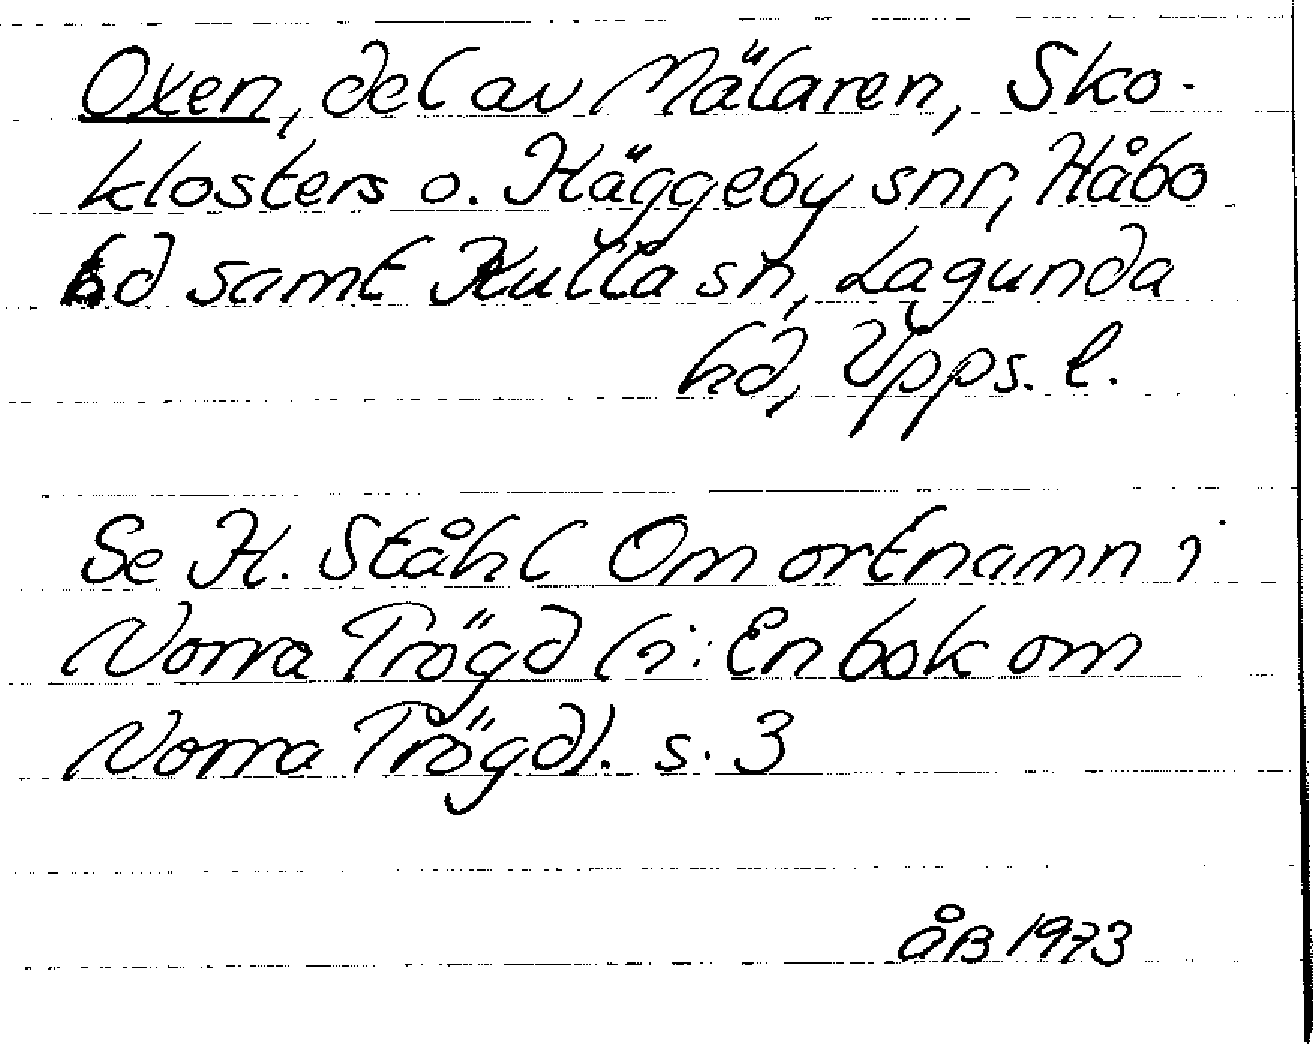 Oxen, del av Mälaren, Sko-
klosters o. Häggeby snr, Håbo
hd samt Kulla sn, Lagunda
hd, Upps. l.
Se H. Ståhl Om ortnamn i
Norra Trögd (i: En bok om
Norra Trögd). s. 3
ÅB 1973